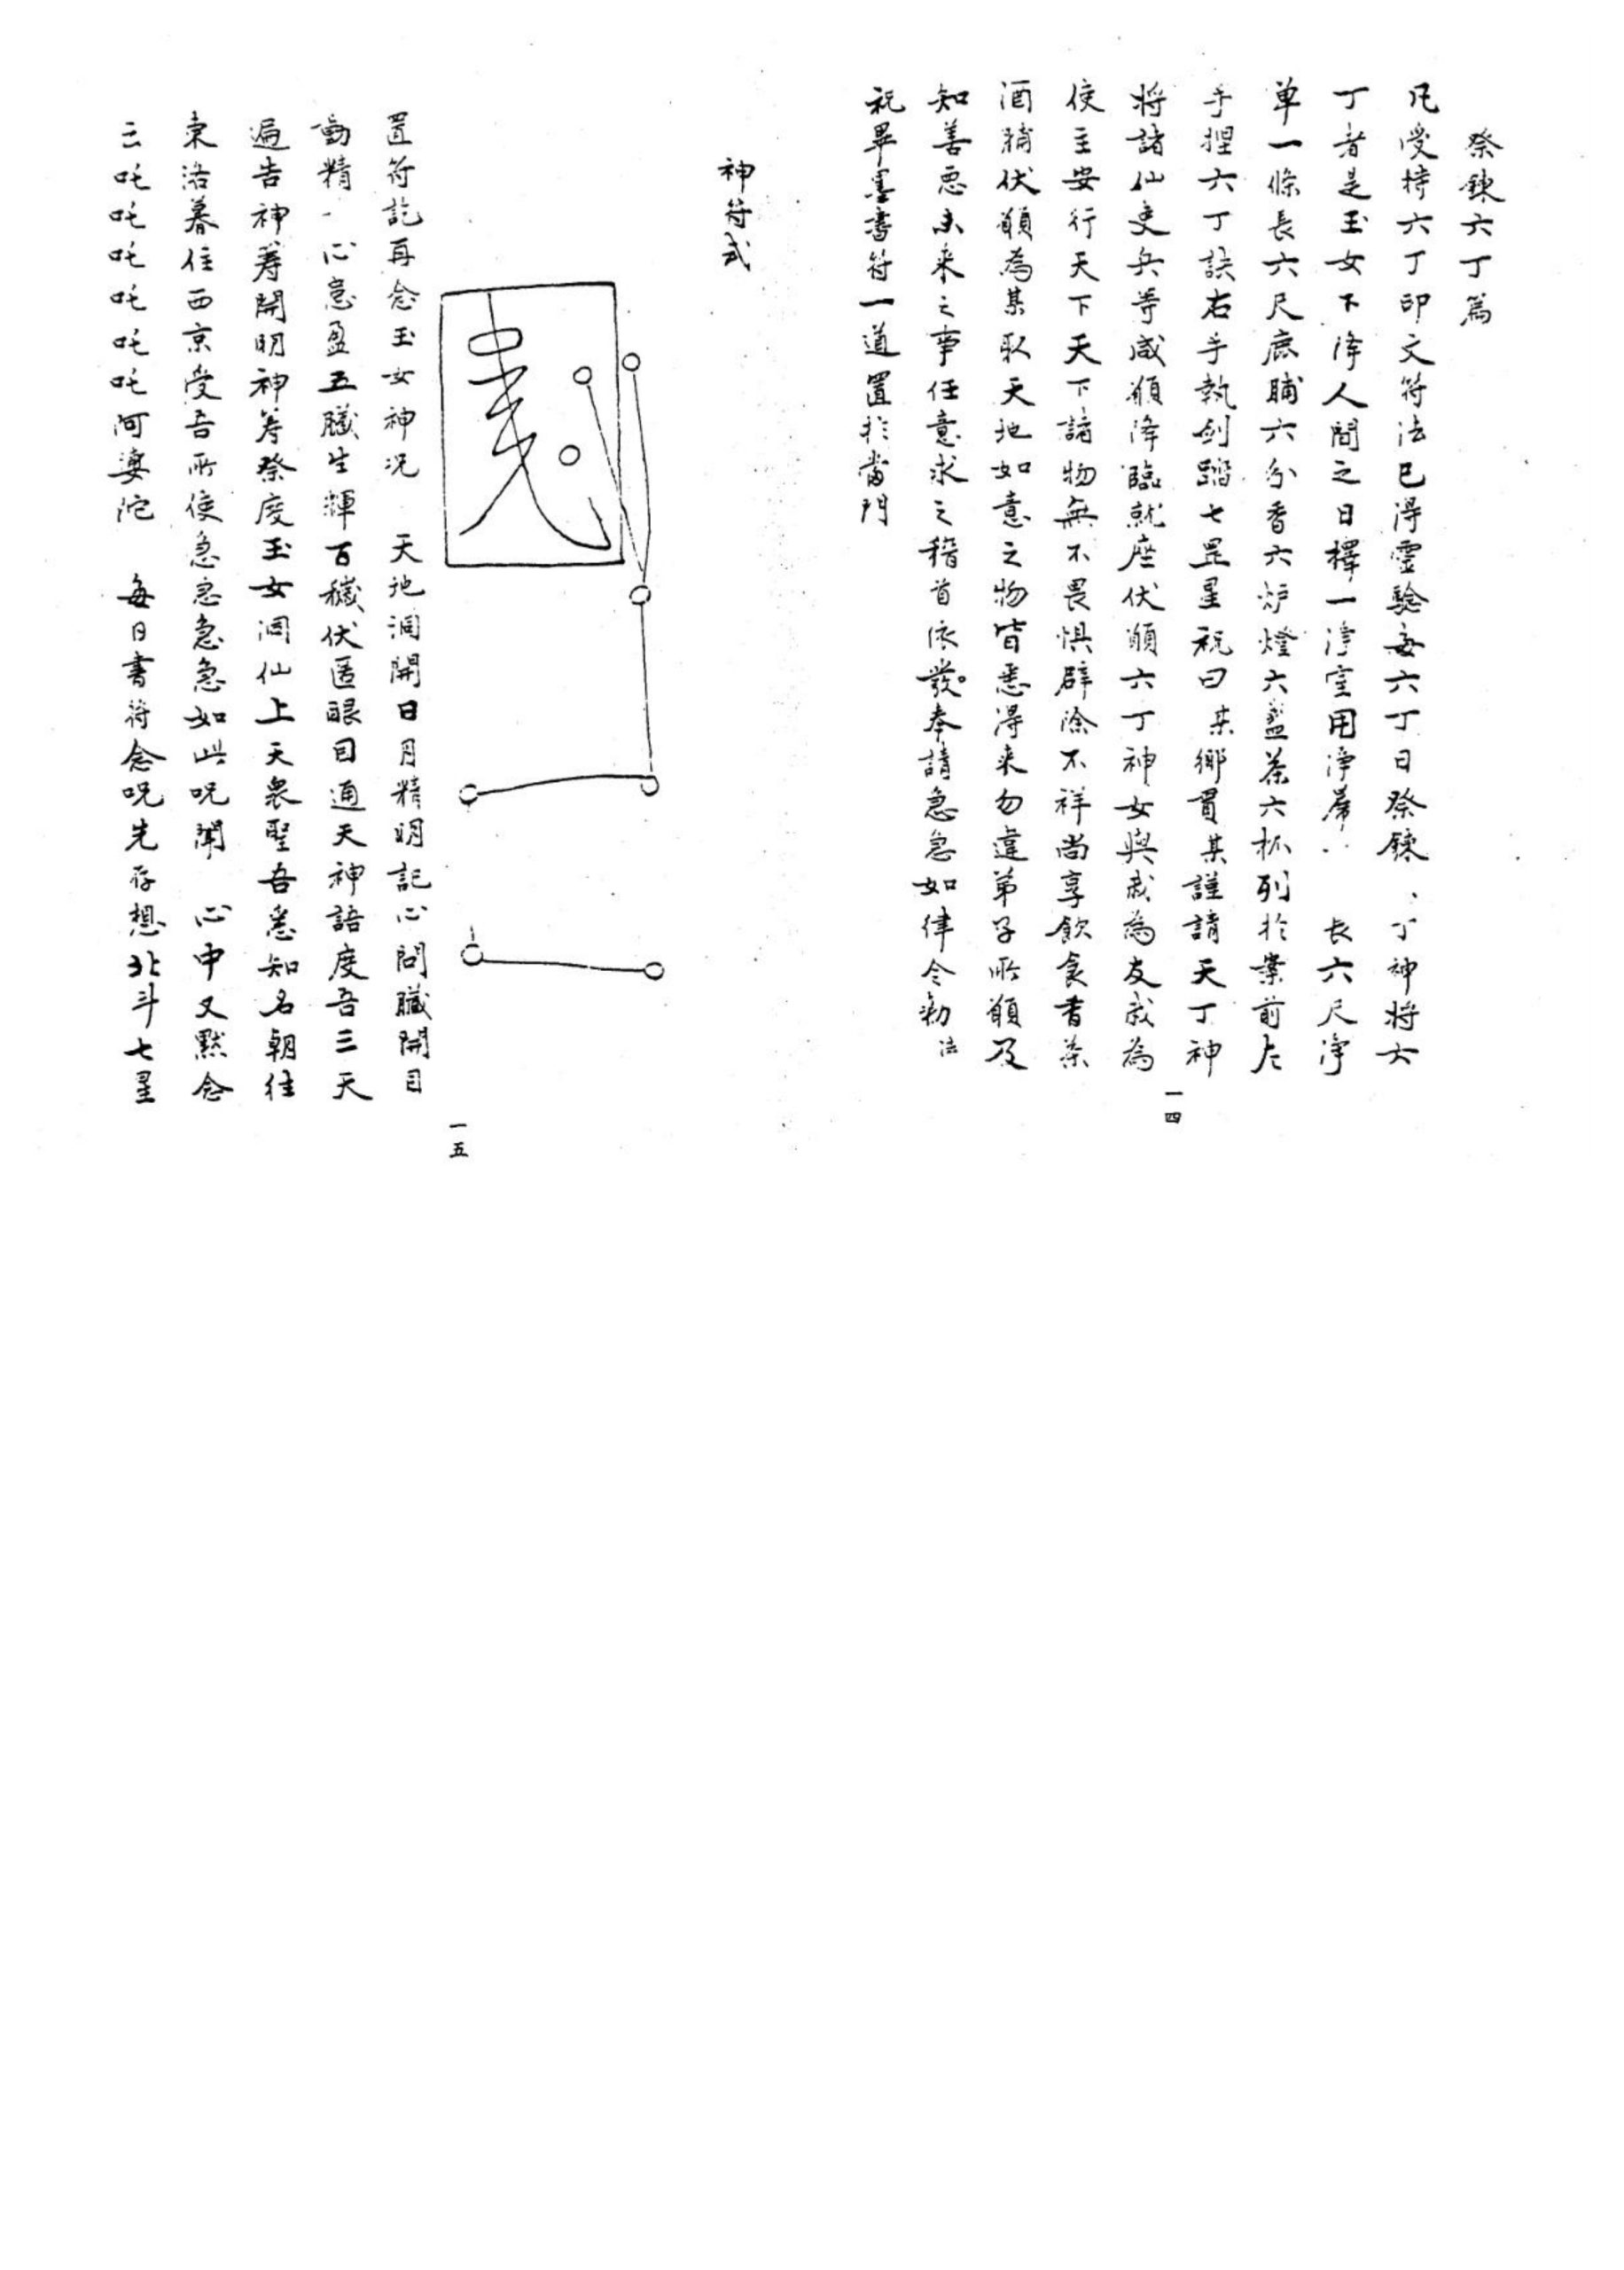 祭鍊六丁篇
凡受持六丁印文符法已得靈驗每六丁日祭鍊丁神將六
丁者是玉女下降人間之日擇一淨室用淨席長六尺淨
单一條長六尺鹿脯六分香六炉燈六盞茶六杯列於案前左
手揑六丁訣右手執劍踏七罡星祝曰某鄉貫某謹請天丁神
將諸仙吏兵等咸願降臨就座伏願六丁神女與我為友我為
使主安行天下天下諸物無不畏惧辟除不祥尚享飲食香茶
酒脯伏願為某取天地如意之物皆悉得来勿違弟子所願及
知善悪未来之事任意求之稽首依發奉請急急如律令勅法
祝畢墨書符一道置於當門
一四
神符式
置符訖再念玉女神况 天地洞開日月精明記心問臟開目
動精心意盈五臟生輝百穢伏匿眼目通天神語度吾三天
遍告神筭開明神筭祭度玉女洞仙上天衆聖吾悉知名朝往
東洛暮住西京受吾所使急急急急如此呪闌 心中又黙念
云吒吒吒吒吒吒阿婆陀 每日書符念呪先存想北斗七星
一五